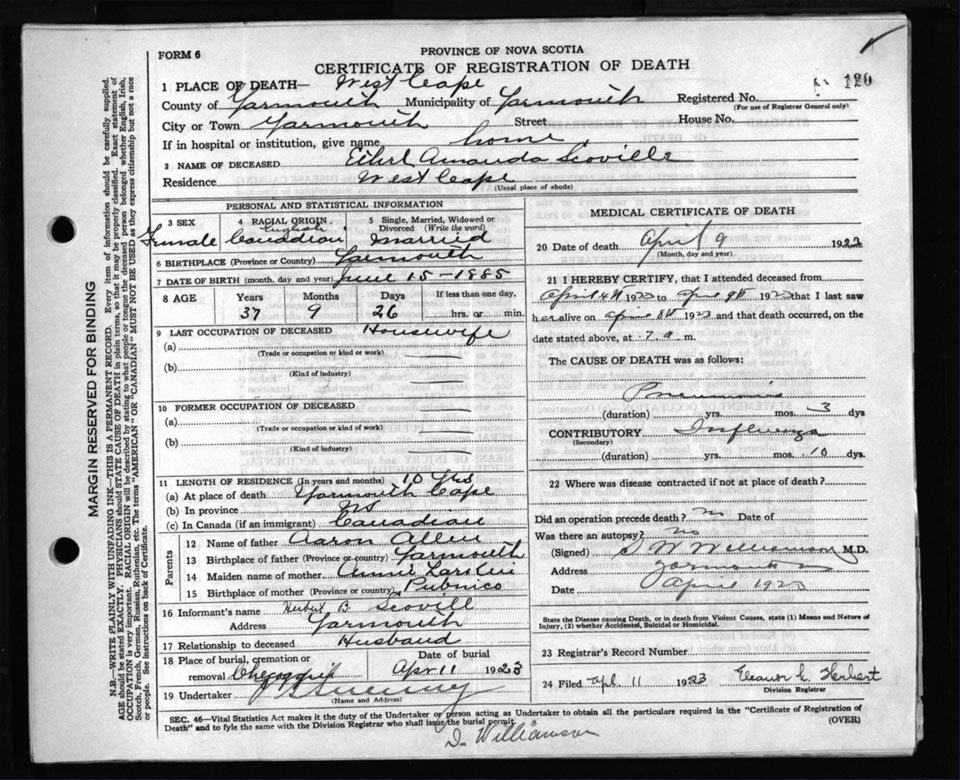 FORM 6
PROVINCE OF NOVA SCOTIA
CERTIFICATE OF REGISTRATION OF DEATH
120
1 PLACE OF DEATH— West Cape
County of Yarmouth Municipality of Yarmouth Registered No.
(For use of Registrar General only)
City or Town Yarmouth Street House No.
If in hospital or institution, give name home
2 NAME OF DECEASED Ethel Amanda Scoville
Residence West Cape
(Usual place of abode)
PERSONAL AND STATISTICAL INFORMATION
3 SEX 4 RACIAL ORIGIN 5 Single, Married, Widowed or Divorced (Write the word)
English
Female Canadian Married
6 BIRTHPLACE (Province or Country) Yarmouth
7 DATE OF BIRTH (month, day and year) June 15 - 1885
8 AGE Years Months Days If less than one day,
37 9 26 hrs. or min.
9 LAST OCCUPATION OF DECEASED Housewife
(a)
(Trade or occupation or kind or work)
(b)
(Kind of industry)
10 FORMER OCCUPATION OF DECEASED
(a)
(Trade or occupation or kind of work)
(b)
(Kind of industry)
11 LENGTH OF RESIDENCE (In years and months) 10 yrs
(a) At place of death Yarmouth Cape
(b) In province NS
(c) In Canada (if an immigrant) Canadian
Parents
12 Name of father Aaron Allen
13 Birthplace of father (Province or country) Yarmouth
14 Maiden name of mother Annie
15 Birthplace of mother (Province or country) Pubnico
16 Informant's name Herbert B. Scovill
Address Yarmouth
17 Relationship to deceased Husband
18 Place of burial, cremation or removal Date of burial
Apr 11 1923
19 Undertaker
(Name and Address)
MEDICAL CERTIFICATE OF DEATH
20 Date of death April 9 1922
(Month, day and year)
21 I HEREBY CERTIFY, that I attended deceased from
April 4th 1923 to April 9th 1923 that I last saw
her alive on April 8th 1923 and that death occurred, on the
date stated above, at 7. a m.
The CAUSE OF DEATH was as follows:
Pneumonia
(duration) yrs. mos. 3 dys
CONTRIBUTORY Influenza
(Secondary)
(duration) yrs. mos. 10 dys.
22 Where was disease contracted if not at place of death?
Did an operation precede death? no Date of
Was there an autopsy? no
(Signed) S W Williamson M.D.
Address Yarmouth
Date April 1923
State the Disease causing Death, or in death from Violent Causes, state (1) Means and Nature of
Injury, (2) whether Accidental, Suicidal or Homicidal.
23 Registrar's Record Number
24 Filed Apl. 11 1923 Eleanor L. Herbert
Division Registrar
SEC. 46—Vital Statistics Act makes it the duty of the Undertaker or person acting as Undertaker to obtain all the particulars required in the "Certificate of Registration of
Death" and to fyle the same with the Division Registrar who shall issue the burial permit. (OVER)
Williamson
MARGIN RESERVED FOR BINDING
N.B.—WRITE PLAINLY WITH UNFADING INK—THIS IS A PERMANENT RECORD. Every item of information should be carefully supplied.
AGE should be stated EXACTLY. PHYSICIANS should STATE CAUSE OF DEATH in plain terms, so that it may be properly classified. Exact statement of
OCCUPATION is very important. RACIAL ORIGIN will be described by stating to what people or tongue the deceased person belonged whether English, Irish,
Scotch, French, German, Russian, Ruthenian, etc. The terms "AMERICAN" OR "CANADIAN" MUST NOT BE USED as they express citizenship but not a race
or people. See instructions on back of Certificate.